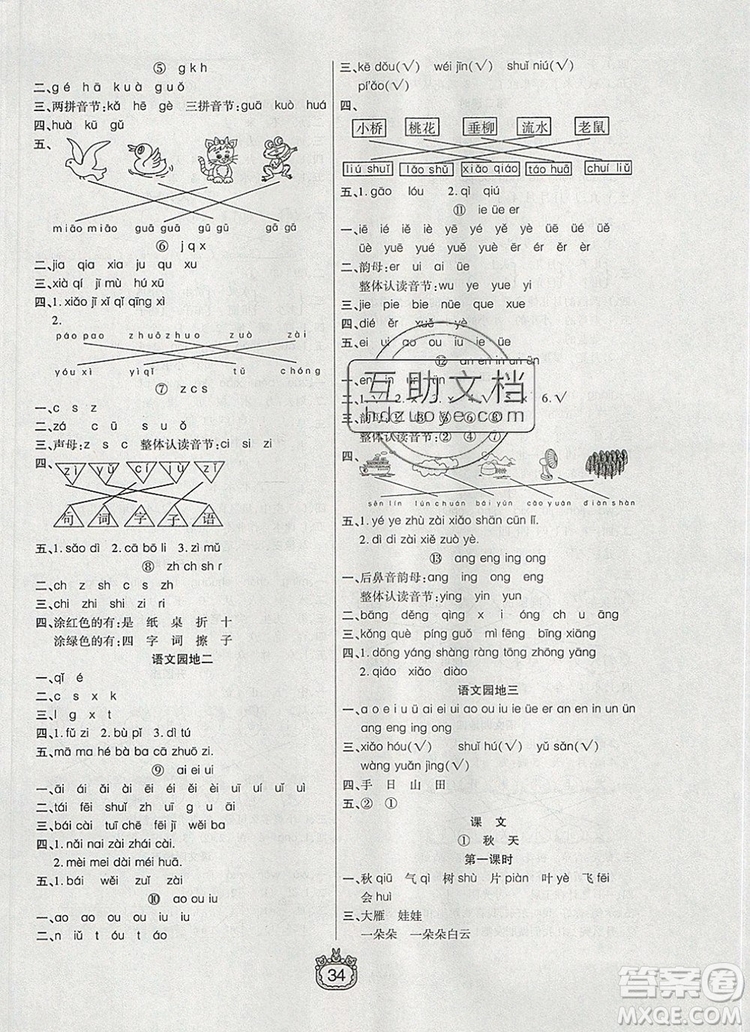 ⑤ g k h
二、gé hā kuà guǒ
三、两拼音节:kǎ hē gè 三拼音节:guā kuò huá
四、huà kū gǔ
五、
miāo miāo guā guā gū gū gā gā
⑥ j q x
二、jia qia xia ju qu xu
三、xià qí jī jǔ mù xī
四、1. xiǎo jī xǐ qǐ qīng xì
2.
pào pao zhuōzhuo zuò zài
yóu xì yìqǐ tǔ chóng
⑦ z c s
一、c s z
二、zá cū suǒ
三、声母:z s c 整体认读音节:ci si zi
四、zì cí jù zǐ
句 词 字 子 语
五、1. sǎo dì 2. cā bō li 3. zì mǔ
⑧ zh ch sh r
二、ch z sh r
三、c zh sh s
四、涂红色的有:是 纸 桌 折 十
涂绿色的有:四 字 词 擦 子
语文园地二
一、qǐ é
二、c s x k
三、l g x t
四、1. fǔ zi 2. bù pǐ 3. dì tú
五、mā ma hé bà ba cā zhuō zi.
⑨ ai ei ui
一、āi ái ǎi ài ēi éi ěi èi uī uí uǐ uì
二、tái fēi shuǐ zhī zi guā āi
三、bái cài tuǐ chē fēi jī wěi ba
四、1. nǎi nai zài zhāi cài
2. mèi mei dài méi huā.
五、1. bái wěi zuǐ zài
⑩ ao ou iu
一、ao ao ou ao ou iu
二、n iǔ t óu táo
三、kē dǒu(√) wéi jīn(√) shuǐ niú(√)
píǎo(√)
四、
小桥 桃花 垂柳 流水 老鼠
liú shuǐ lǎo shǔ xiǎo qiáo táo huā chuí liǔ
五、1. gāo lóu 2. qì qiú
⑪ ie üe er
一、iē ié iě iè yē yé yě yè ēr ér ěr èr
üē üé üě üè yuē yué yuě yuè
二、韵母:er ui ai üe
整体认读音节:wu ye yue yi
三、jie pie bie nüe que jue
四、dié ěr xuě yè
五、ei ao ou iu ie üe
⑫ an en in un ün
一、en in ün
三、韵母:
整体认读音节:
四、
sēn lín lún chuán bái yún cǎo yuán diàn shàn
五、1. yé ye zhù zài xiǎo shān cūn lǐ.
2. dì di zài xiě zuò yè.
⑬ ang eng ing ong
一、后鼻音韵母:ang ing ong eng
整体认读音节:ying yin yun
二、bāng děng qìng x i óng áng
三、kǒng què píng guǒ mì fēng xīng xing
四、1. dōng fāng rán rán shēng tài yáng zhōng
2. qiáo xiǎo diào
语文园地三
一、a o e i u ü ai ei ui ao ou iu ie üe er an en in un ün
ang eng ing ong
三、xiǎo hóu(√) shuǐ hú(√) yǔ sǎn(√)
wàng yuǎn jìng(√)
四、手 日 山 田
五、② ①
课 文
① 秋 天
第一课时
一、秋qiū 气qì 树shù 片piàn 叶yè 飞fēi
会huì
三、大雁 娃娃
一朵朵 一朵朵白云
34
互助文档
hdzuoye.com
答案圈
MXQE.COM